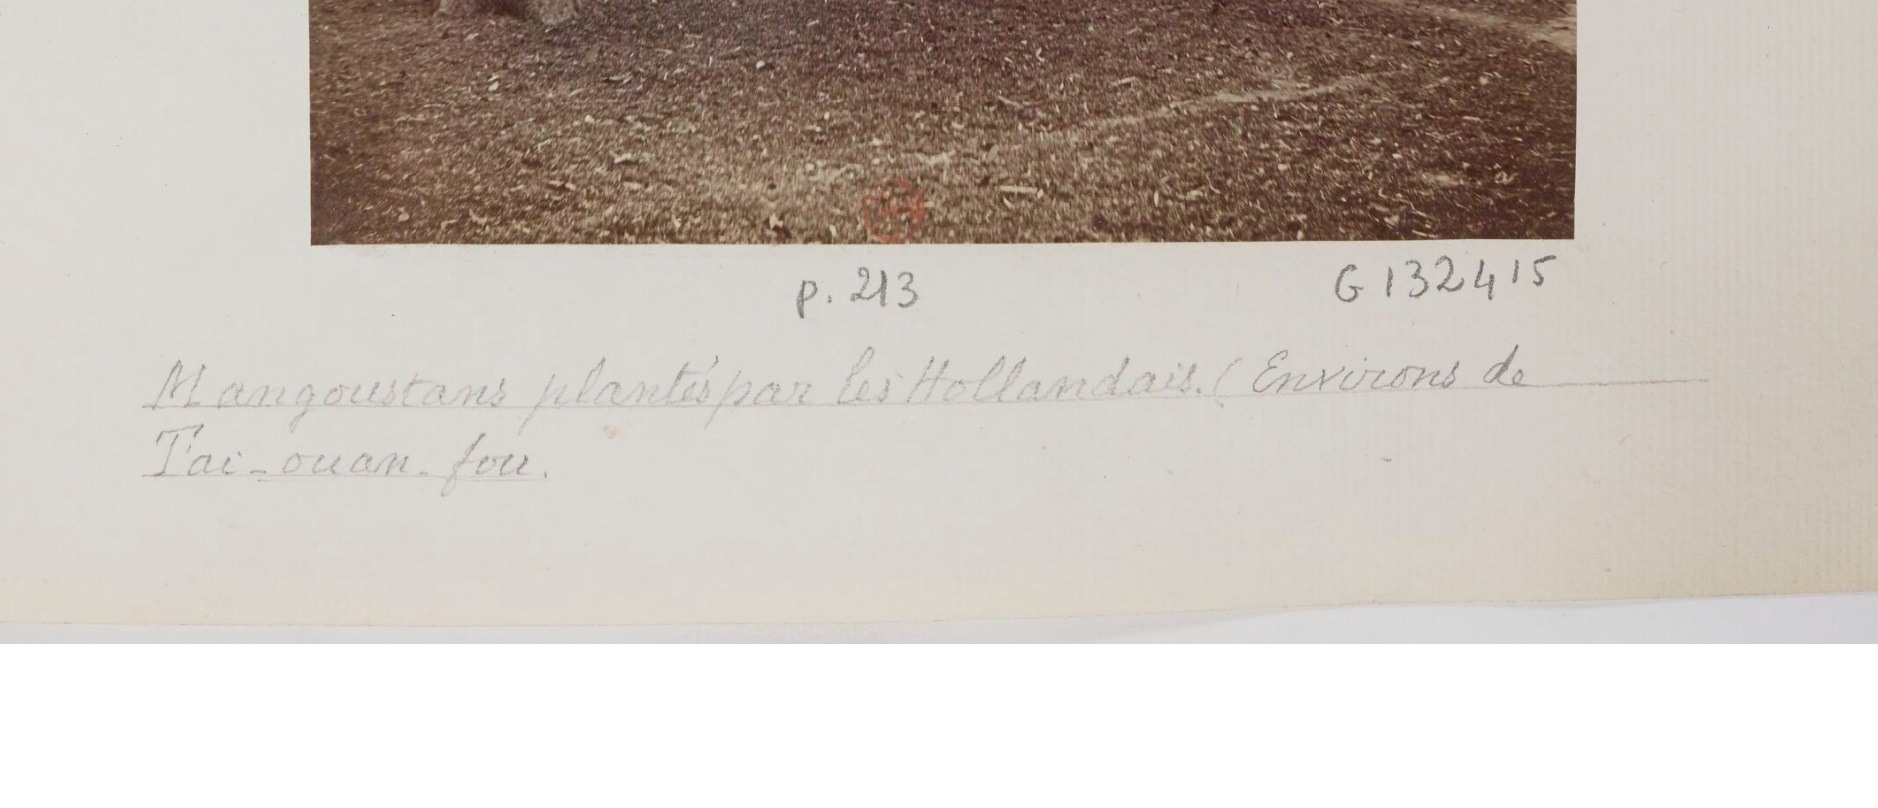 p. 213
G 132415
Mangoustans plantés par les Hollandais. (Environs de
Tai-ouan-fou.